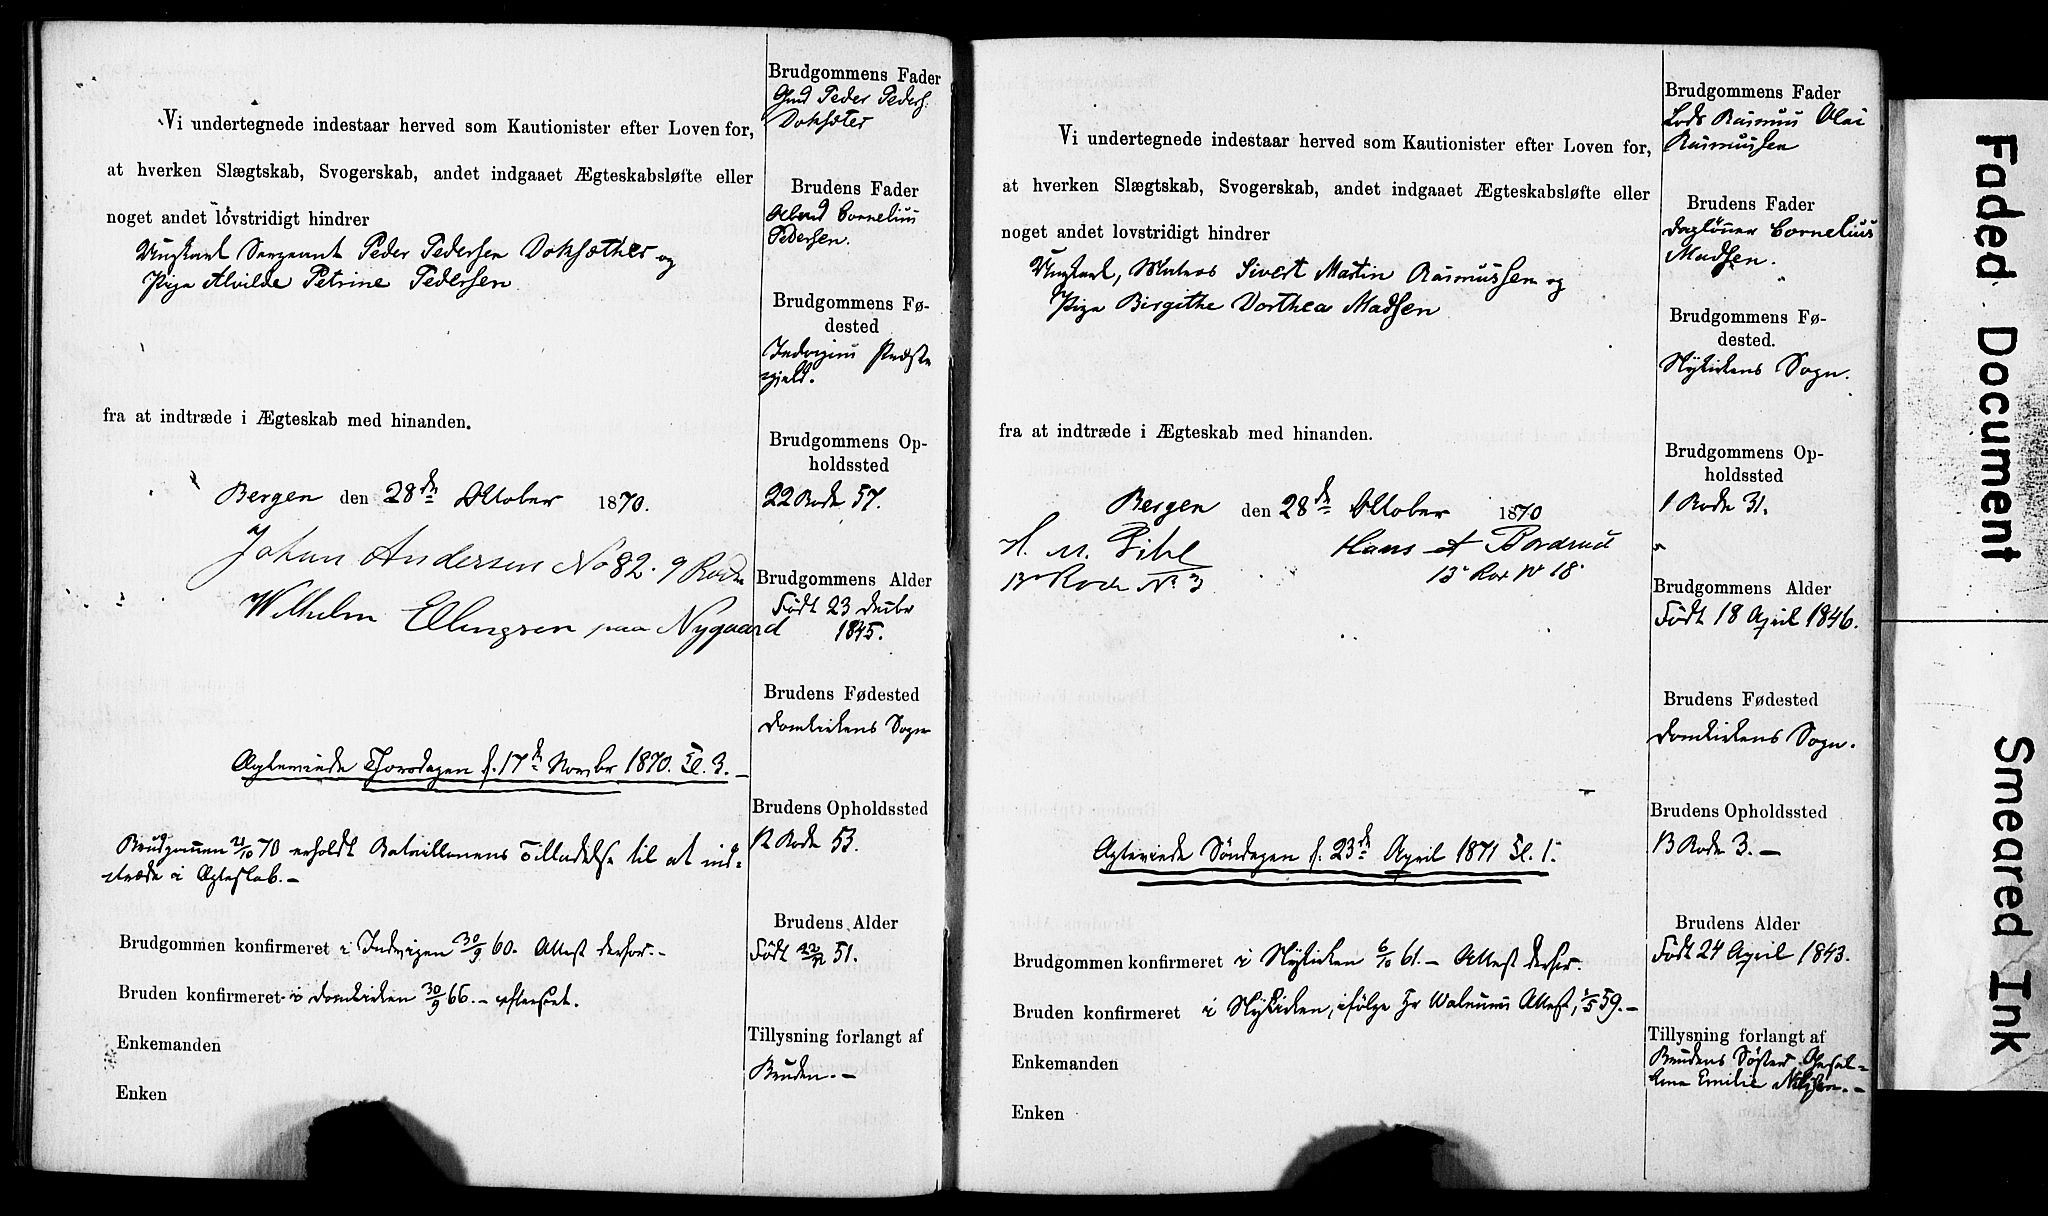 Vi undertegnede indestaar herved som Kautionister efter Loven for,
at hverken Slægtskab, Svogerskab, andet indgaaet Ægteskabsløfte eller
noget andet lovstridigt hindrer
Ungkarl Sergeant Peder Pedersen Doksæther og
Pige Alvilde Petrine Pedersen
fra at indtræde i Ægteskab med hinanden.
Bergen den 28de Oktober 1870.
Johan Andersen No 82. 9 Rode
Wilhelm Ellingsen paa Nygaard
Ægteviede Thorsdagen d. 17de Novbr 1870. Kl. 3.
Brudgommen 21/10 70 erholdt Bataillonens Tilladelse til at ind-
træde i Ægteskab.
Brudgommen konfirmeret i Indvigen 30/9 60. Attest derfor.
Bruden konfirmeret i Domkirken 30/9 66. - efterseet.
Enkemanden
Enken
Brudgommens Fader
Gmd Peder Peders.
Doksæter
Brudens Fader
Cornelius
Pedersen.
Brudgommens Fø-
dested
Indvigens Præste
gjeld.
Brudgommens Op-
holdssted
22 Rode 57.
Brudgommens Alder
Født 23 Decbr
1845.
Brudens Fødested
Domkirkens Sogn
Brudens Opholdssted
12 Rode 53.
Brudens Alder
Født 22/12 51.
Tillysning forlangt af
Bruden.
Vi undertegnede indestaar herved som Kautionister efter Loven for,
at hverken Slægtskab, Svogerskab, andet indgaaet Ægteskabsløfte eller
noget andet lovstridigt hindrer
Ungkarl, Matros Sivert Martin Rasmussen og
Pige Birgithe Dorthea Madsen
fra at indtræde i Ægteskab med hinanden.
Bergen den 28de Oktober 1870
H. M. Pihl Hans A Bordrud
13 Rode No 3 13 Rod No 18
Ægteviede Søndagen d. 23de April 1871 Kl. 1.
Brudgommen konfirmeret i Nykirken 6/10 61. - Attest derfor.
Bruden konfirmeret i Nykirken, ifølge Hr Walnums Attest, 1/5 59.
Enkemanden
Enken
Brudgommens Fader
Lods Rasmus Olai
Rasmussen
Brudens Fader
Dagløner Cornelius
Madsen.
Brudgommens Fø-
dested.
Nykirkens Sogn.
Brudgommens Op-
holdssted
1 Rode 31.
Brudgommens Alder
Født 18 April 1846.
Brudens Fødested
Domkirkens Sogn.
Brudens Opholdssted
13 Rode 3.
Brudens Alder
Født 24 April 1843.
Tillysning forlangt af
Brudens Søster
Emilie
Faded Document
Smeared Ink